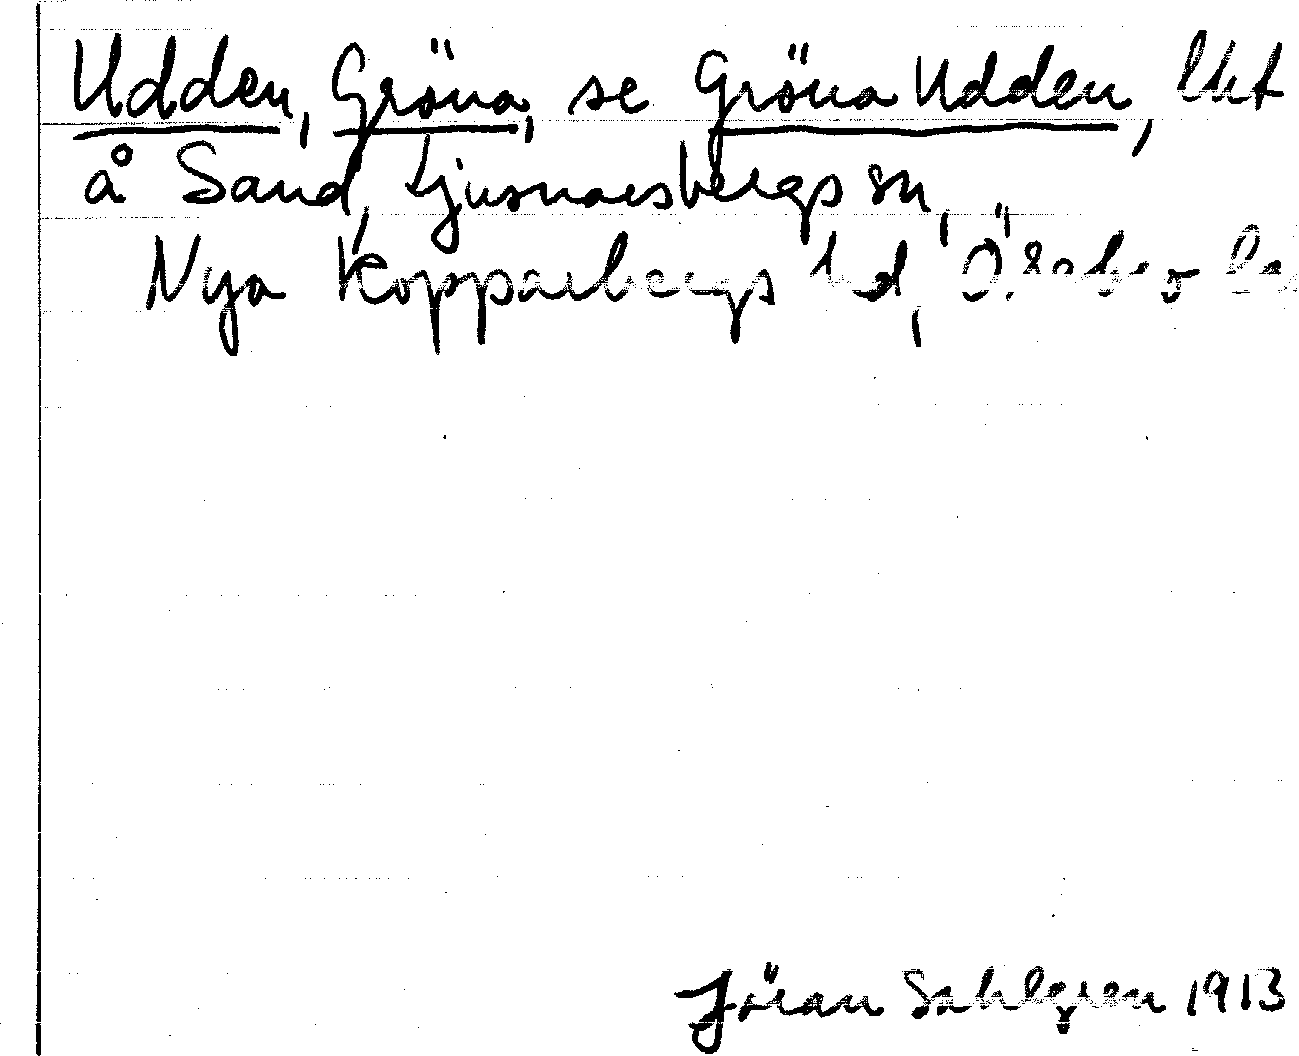 Udden, Gröna, se Gröna Udden, lht
å Sand, Ljusnarsbergs sn,
Nya Kopparbergs hd, Örebro län
Jöran Sahlgren 1913